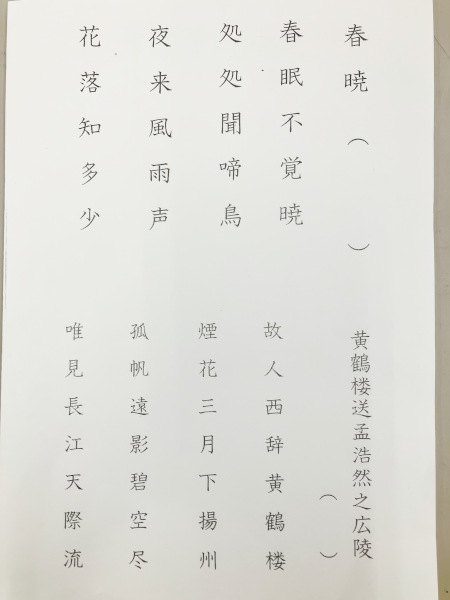 春暁（　　）
春眠不覚暁
処処聞啼鳥
夜来風雨声
花落知多少
黄鶴楼送孟浩然之広陵
（　　）
故人西辞黄鶴楼
煙花三月下揚州
孤帆遠影碧空尽
唯見長江天際流